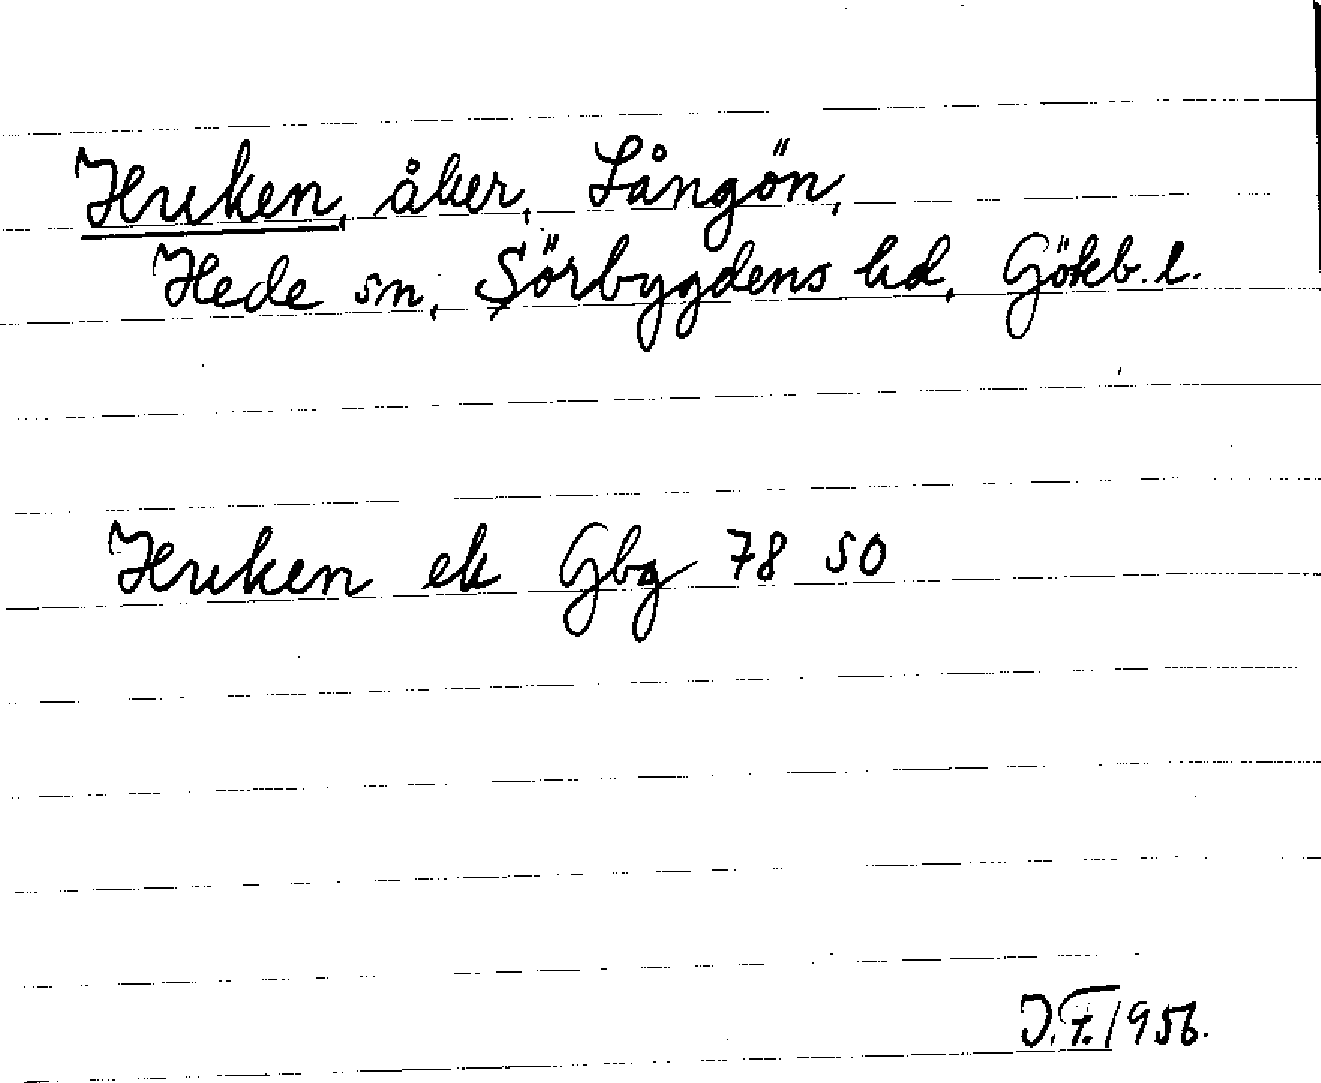 Huken, åker, Långön,
Hede sn, Sörbygdens hd, Gökb. l.
Huken ek Gbg 78 50
J.F. 1956.